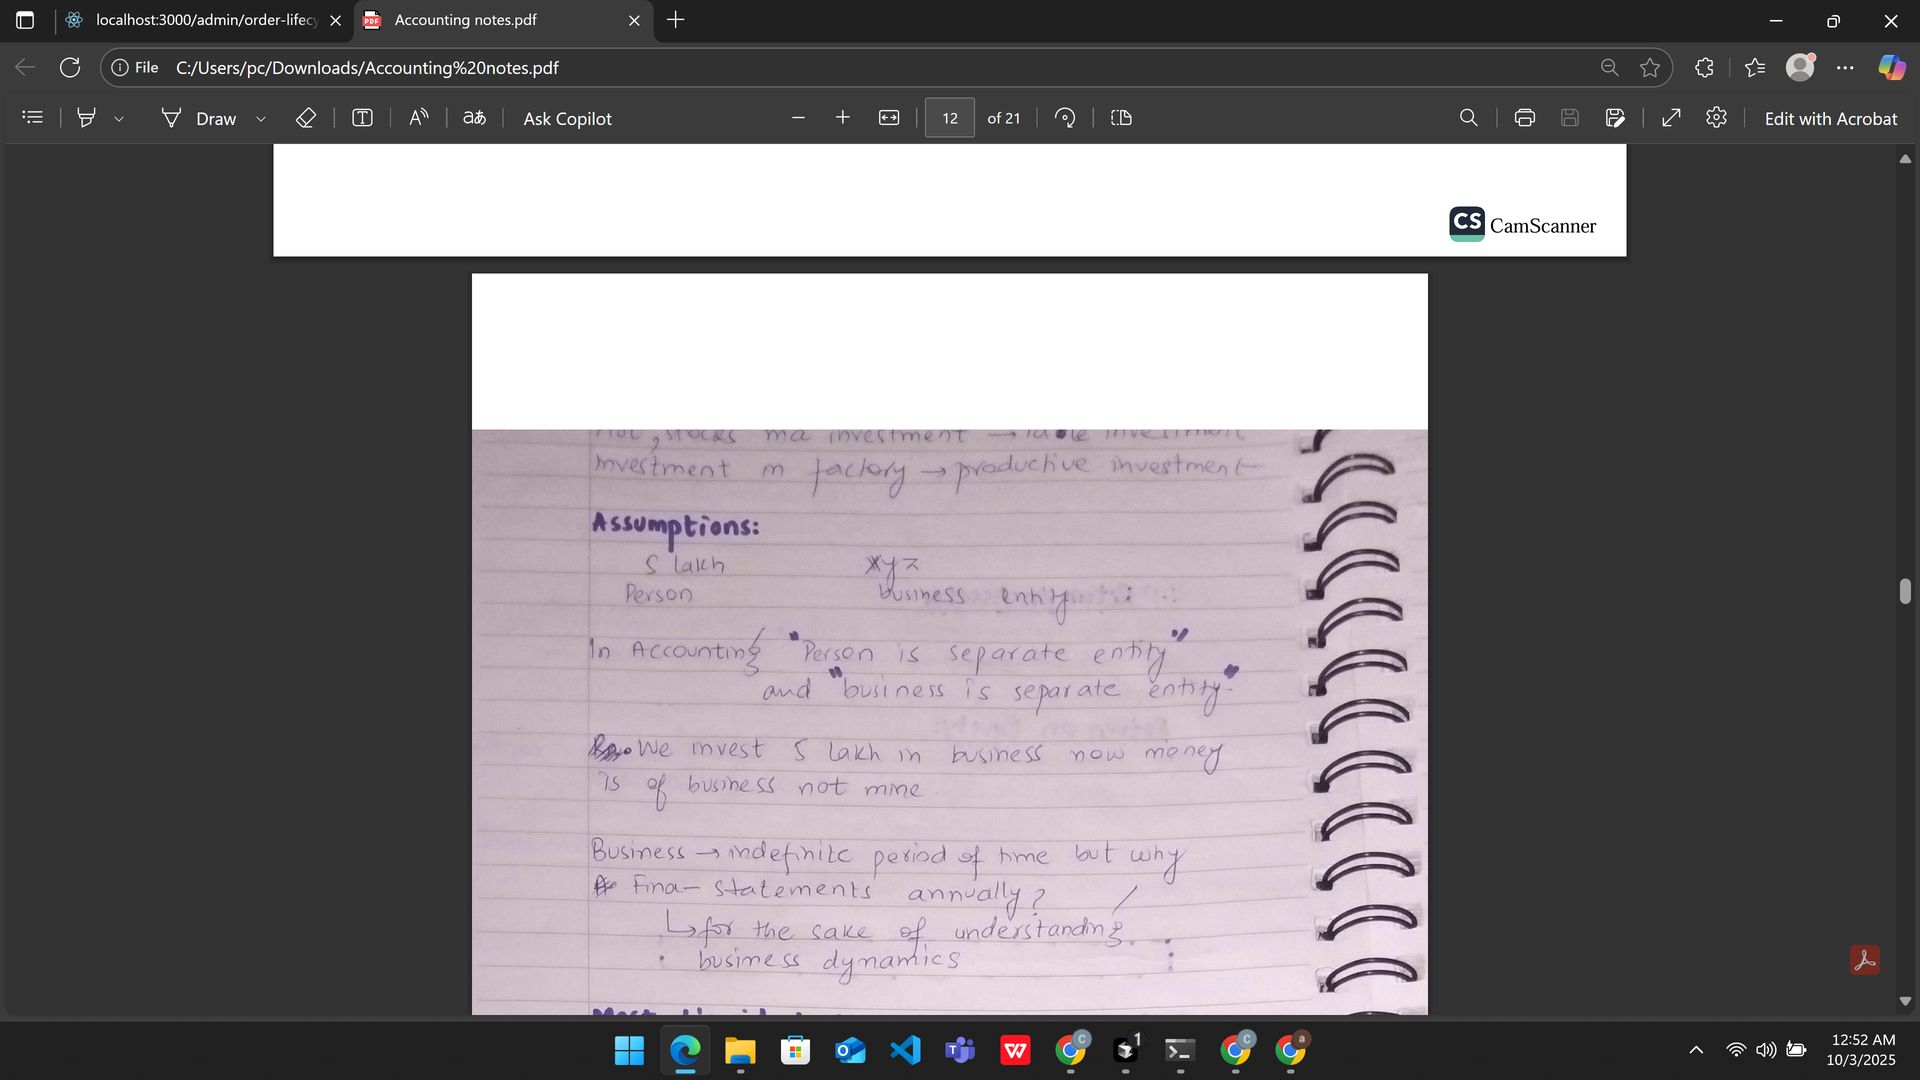 localhost:3000/admin/order-lifecy
Accounting notes.pdf
File C:/Users/pc/Downloads/Accounting%20notes.pdf
Draw
aあ
Ask Copilot
12 of 21
Edit with Acrobat
CS CamScanner
stocks ma investment →
investment in factory → productive investment
Assumptions:
5 lakh xyz
Person business entity
In Accounting "Person is separate entity"
and "business is separate entity"
We invest 5 lakh in business now money
is of business not mine
Business → indefinite period of time but why
Fina- statements annually?
↳ for the sake of understanding
business dynamics
12:52 AM
10/3/2025